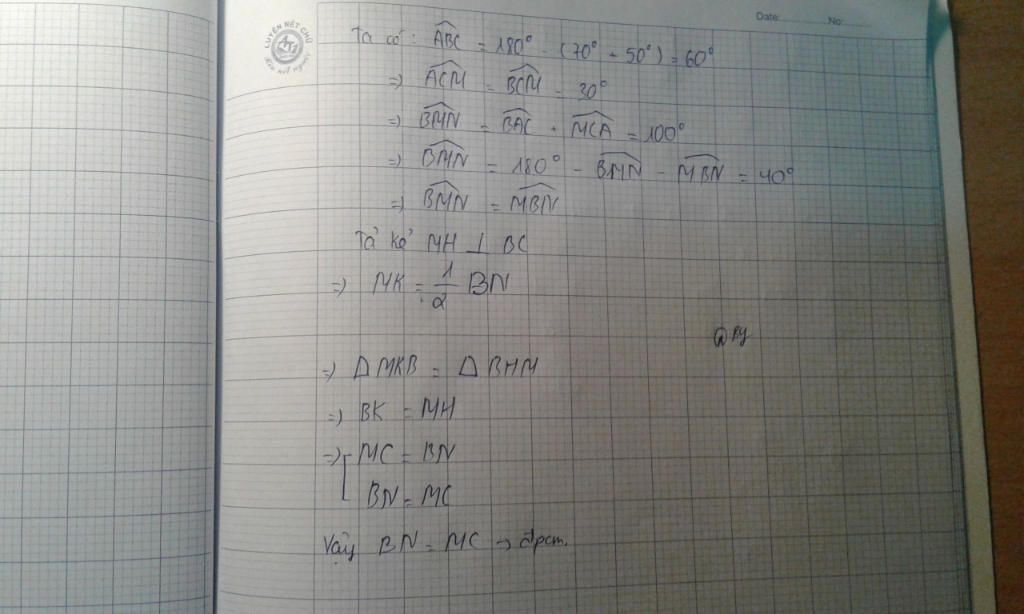 Date: No:
LUYỆN NÉT CHỮ
Rèn nết người
Ta có: ABC = 180° - (70° + 50°) = 60°
=> ACM = BCM = 30°
=> BMN = BAC + MCA = 100°
=> BMN = 180° - BMN - MBN = 40°
=> BMN = MBN
Ta kẻ MH ⊥ BC
=> MK = 1/2 BN
@ Py
=> Δ MKB = Δ BHM
=> BK = MH
=> [ MC = BN
BN = MC
Vậy BN = MC -> đpcm.